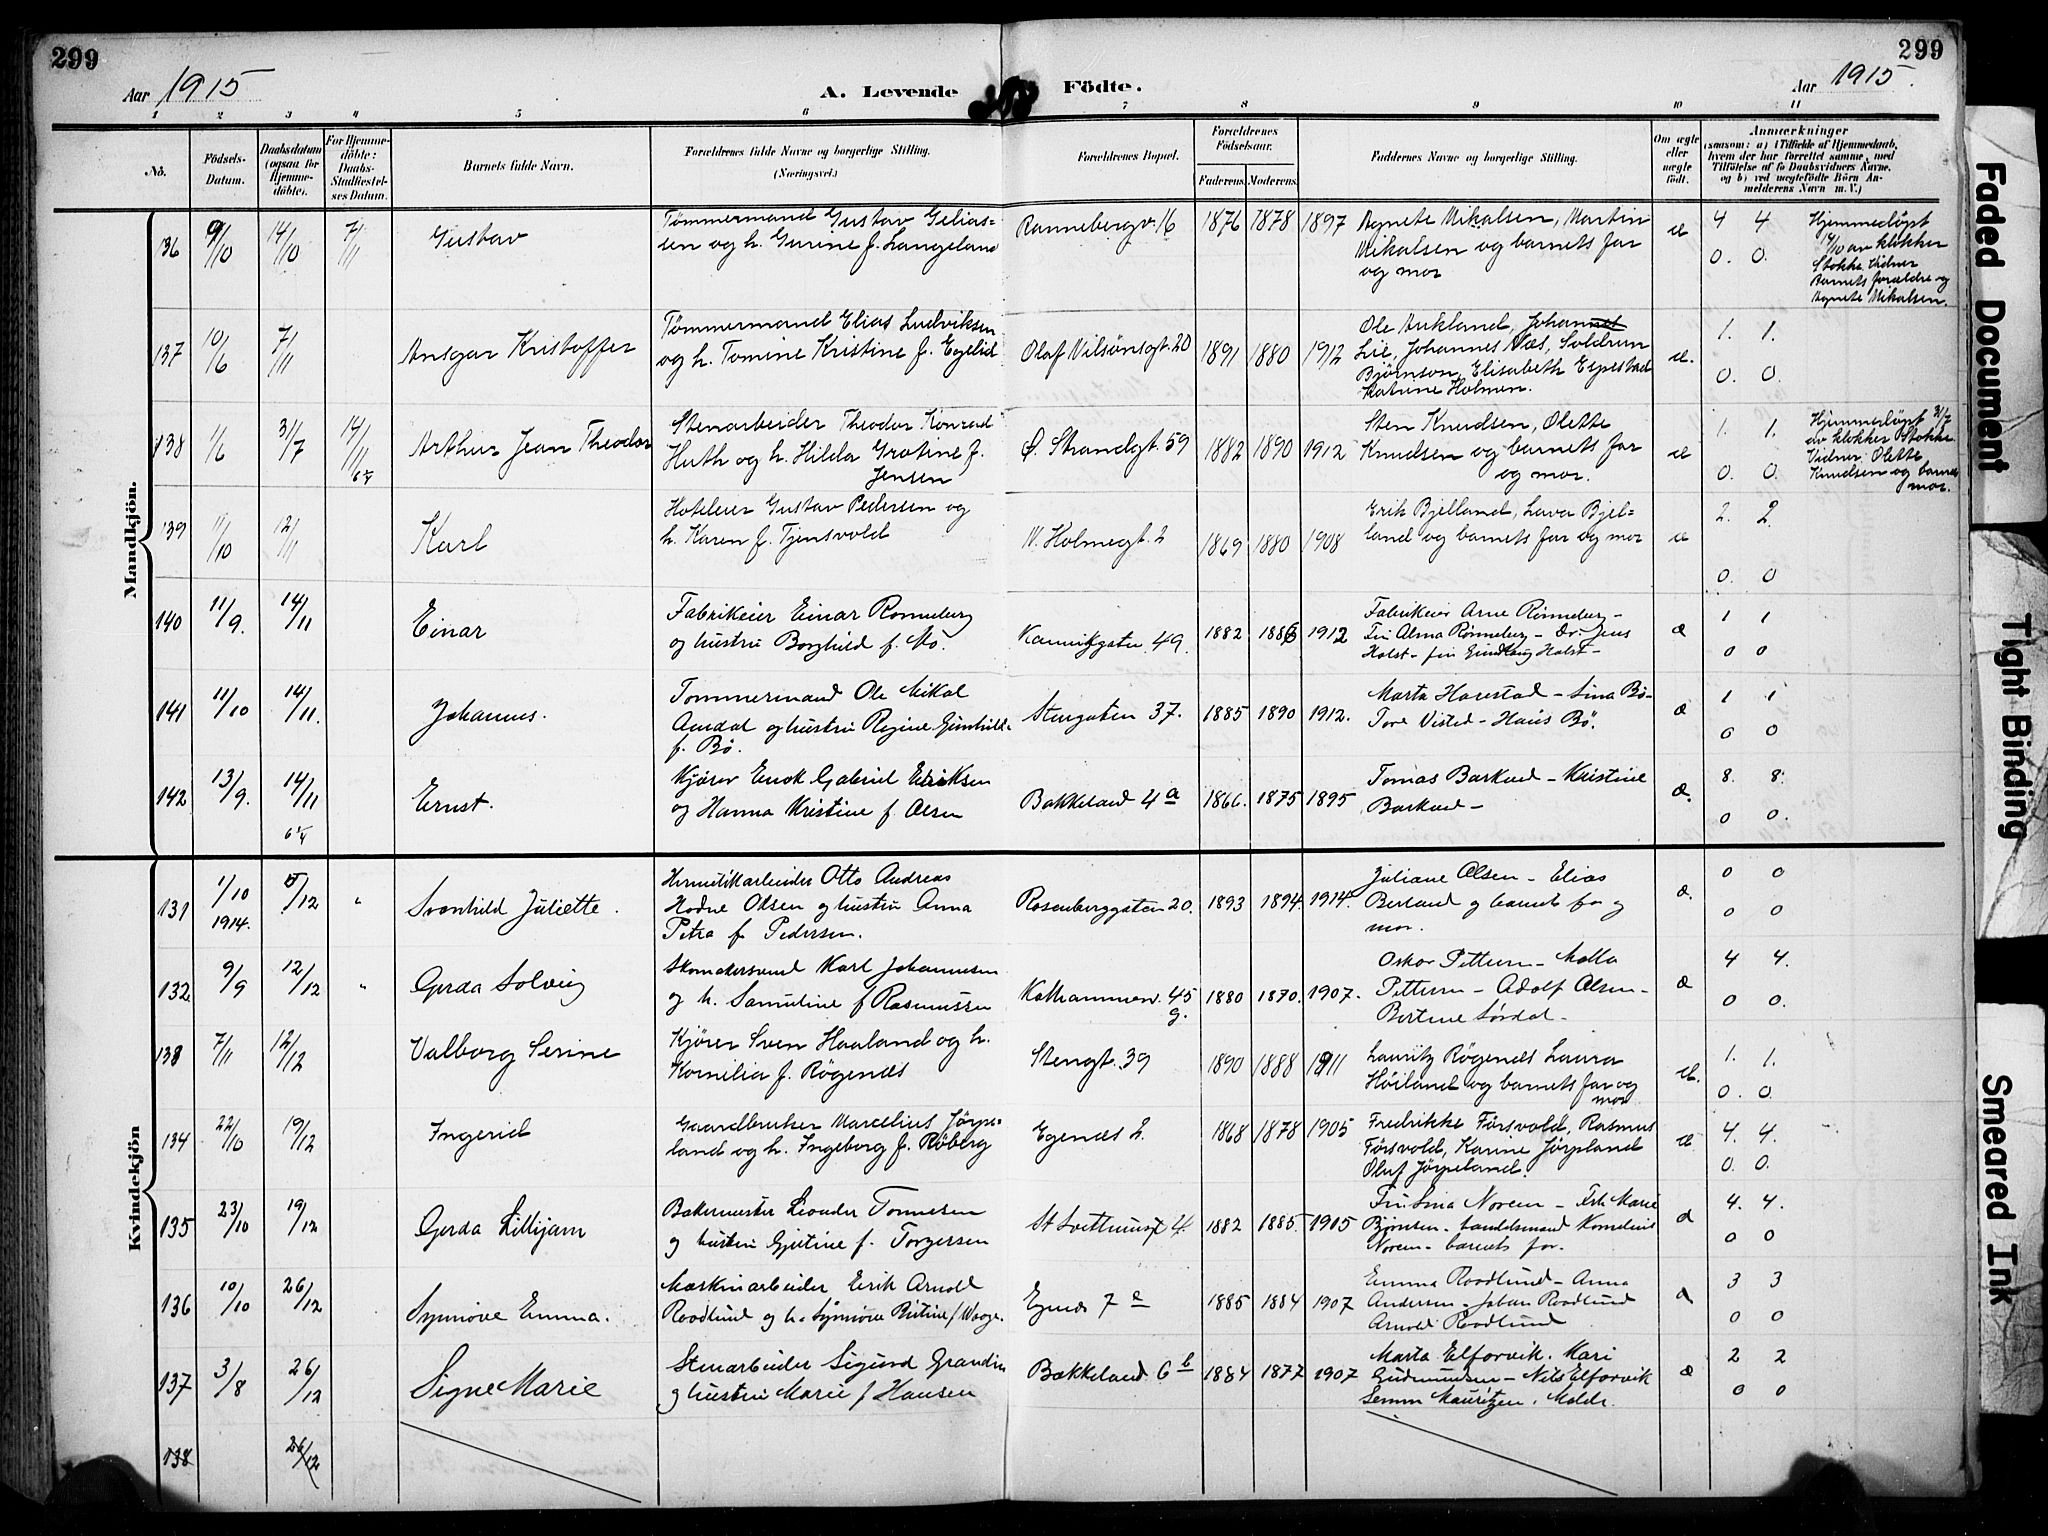 299
299
Aar 1915
A. Levende Födte.
Aar 1915.
1 2 3 4 5 6 7 8 9 10 11
No.
Födsels-
Datum.
Daabsdatum
(ogsaa for
Hjemme-
döbte).
For Hjemme-
döbte:
Daabs-
Stadfæstel-
ses Datum.
Barnets fulde Navn.
Forældrenes fulde Navne og borgerlige Stilling.
(Næringsvei.)
Forældrenes Bopæl.
Forældrenes
Födselsaar.
Faderens.
Moderens.
Faddernes Navne og borgerlige Stilling.
Om ægte
eller
uægte
födt.
Anmærkninger
(saasom: a) i Tilfælde af Hjemmedaab,
hvem der har forrettet samme, med
Tilföielse af to Daabsvidners Navne,
og b) ved uægtefödte Börn An-
melderens Navn m. V.)
Mandkjön.
136 9/10 14/10 7/11 Gustav
Tømmermand Gustav Gelias=
sen og h. Gurine f. Langeland
Rannebergv. 16 1876 1878 1897
Agnete Mikalsen, Martin
Mikalsen og barnets far
og mor
æ
4 4
0. 0.
Hjemmedøpt
14/10 av klokker
Stokke. Vidner
Barnets forældre og
Agnete Mikalsen.
137 10/6 7/11 Ansgar Kristoffer
Tømmermand Elias Ludviksen
og h. Tomine Kristine f. Egelid
Olaf Vilsönsgt. 20 1891 1880 1912
Ole Aukland,
Lie, Johannes Næs,
Bjørnson, Elisabeth Espestad
Katrine Holmen.
æ.
1. 1.
0. 0.
138 1/6 31/7 14/11 Arthur Jean Theodor
Stenarbeider Theodor Konrad
Huth og h. Hilda Gratine f.
Jensen
Ø. Strandgt. 59 1882 1890 1912
Sten Knudsen, Olette
Knudsen og barnets far
og mor.
æ
1. 1.
0. 0.
Hjemmedøpt 31/7
av klokker Stokke
Vidner Olette
Knudsen og barnets
mor.
139 11/10 12/11 Karl
Hoteleier Gustav Pedersen og
h. Karen f. Tjensvold
V. Holmegt. 2 1869 1880 1908
Erik Bjelland, Lava Bjel=
land og barnets far og mor
æ
2. 2.
0. 0
140 11/9. 14/11 Einar
Fabrikeier Einar Rønneberg
og hustru Borghild f. Mö.
Kannikgaten 49. 1882 1886 1912
Fabrikeier Arne Rønneberg -
Fru Alma Rønneberg - Dr. Jens
Holst - fru Holst -
æ
1 1
0 0
141 11/10 14/11. Johannes.
Tømmermand Ole Mikal
Aandal og hustru Regine Gunhild
f. Bö.
Stengaten 37. 1885 1890 1912.
Marta Harestad - Sina Bö -
Tore Visted - Hans Bö.
æ
1 1
0 0
142 13/9. 14/11 Ernst.
Kjører Enok Gabriel Eriksen
og Hanna Kristine f. Olsen
Bakkeland 4a 1866. 1875 1895
Tomas Barkved - Kristine
Barkved -
æ.
8. 8.
0 0.
Kvindekjön
131 1/10 1914. 5/12 " Svanhild Juliette.
Hermetikarbeider Otto Andreas
Hodne Olsen og hustru Anna
Petra f. Pedersen.
Rosenberggaten 20. 1893 1894. 1914.
Juliane Olsen - Elias
Berland og barnets far og
mor.
æ.
0 0
0 0
132 9/9 12/12 " Gerda Solveig
Skomakersvend Karl Johannesen
og h. Samuline f Rasmussen
Kathammerv. 45 g. 1880 1870. 1907.
Oskar Pettersen - Malla
Pettersen - Adolf Olsen -
Bertine Sørdal -
æ
4 4.
0 0.
133 7/11 12/12 Valborg Serine
Kjører Sven Haaland og h.
Kornelia f. Røgenæs
Stengt. 39 1890 1888 1911
Lauritz Røgenæs Laura
Höiland og barnets far og
mor
æ.
1. 1.
0. 0.
134 22/10 19/12 Ingerid
Gaardbruker Marcelius Jörpe=
land og h. Ingeborg f. Røberg
Egenæs 2. 1868 1878 1905
Fredrikke Førsvold, Rasmus
Førsvold, Karine Jörpeland
Oluf Jörpeland.
æ
4. 4.
0. 0.
135 23/10 19/12 Gerda Lillijam
Bakermester Leonder Tønnesen
og hustru Gjertine f. Torgersen
St Svithunsgt 4 1882 1885. 1905
Fru Sina Norem - Frk Marie
Bjørnsen - handelsmand Kornelius
Norem - barnets far.
æ
4. 4.
0 0
136 10/10 26/12 Synnøve Emma.
Maskinarbeider Erik Arnold
Roodlund og h. Synnöve Bertine f Waage.
Egenes 7e 1885 1884 1907
Emma Roodlund - Anna
Andersen - Johan Roodlund
Arnold Roodlund
æ
3 3
0 0
137 3/8 26/12 Signe Marie
Stenarbeider Sigurd Grandin
og hustru Marie f Hansen
Bakkeland 6b 1884 1877 1907
Marta Elforvik. Mari
Gudmundsen - Nils Elforvik
Semm Mauritzen. Molde.
æ
2 2
0 0
138 26/12
Faded Document
Tight Binding
Smeared Ink